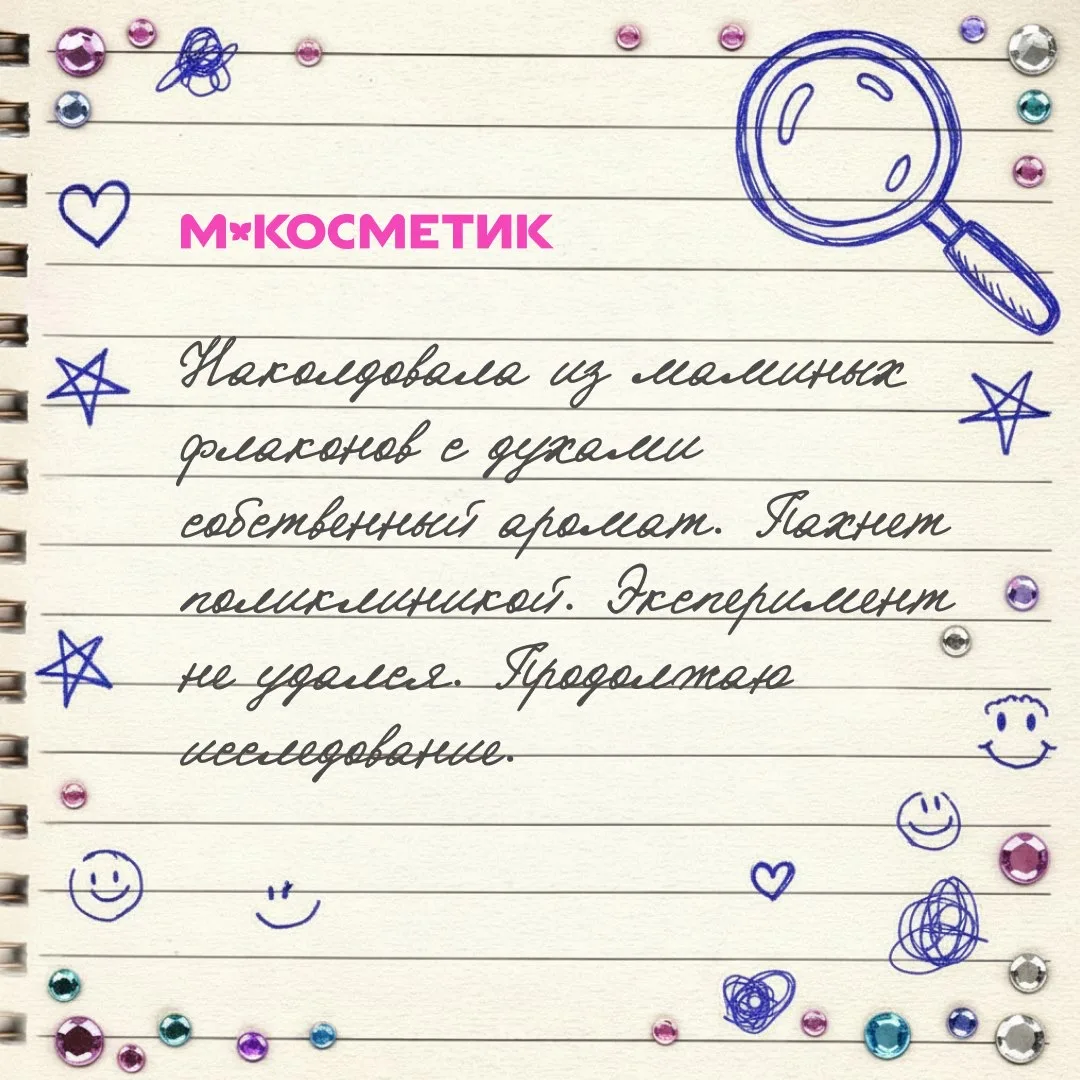 М КОСМЕТИК
Наколдовала из маминых
флаконов с духами
собственный аромат. Пахнет
поликлиникой. Эксперимент
не удался. Продолжаю
исследование.